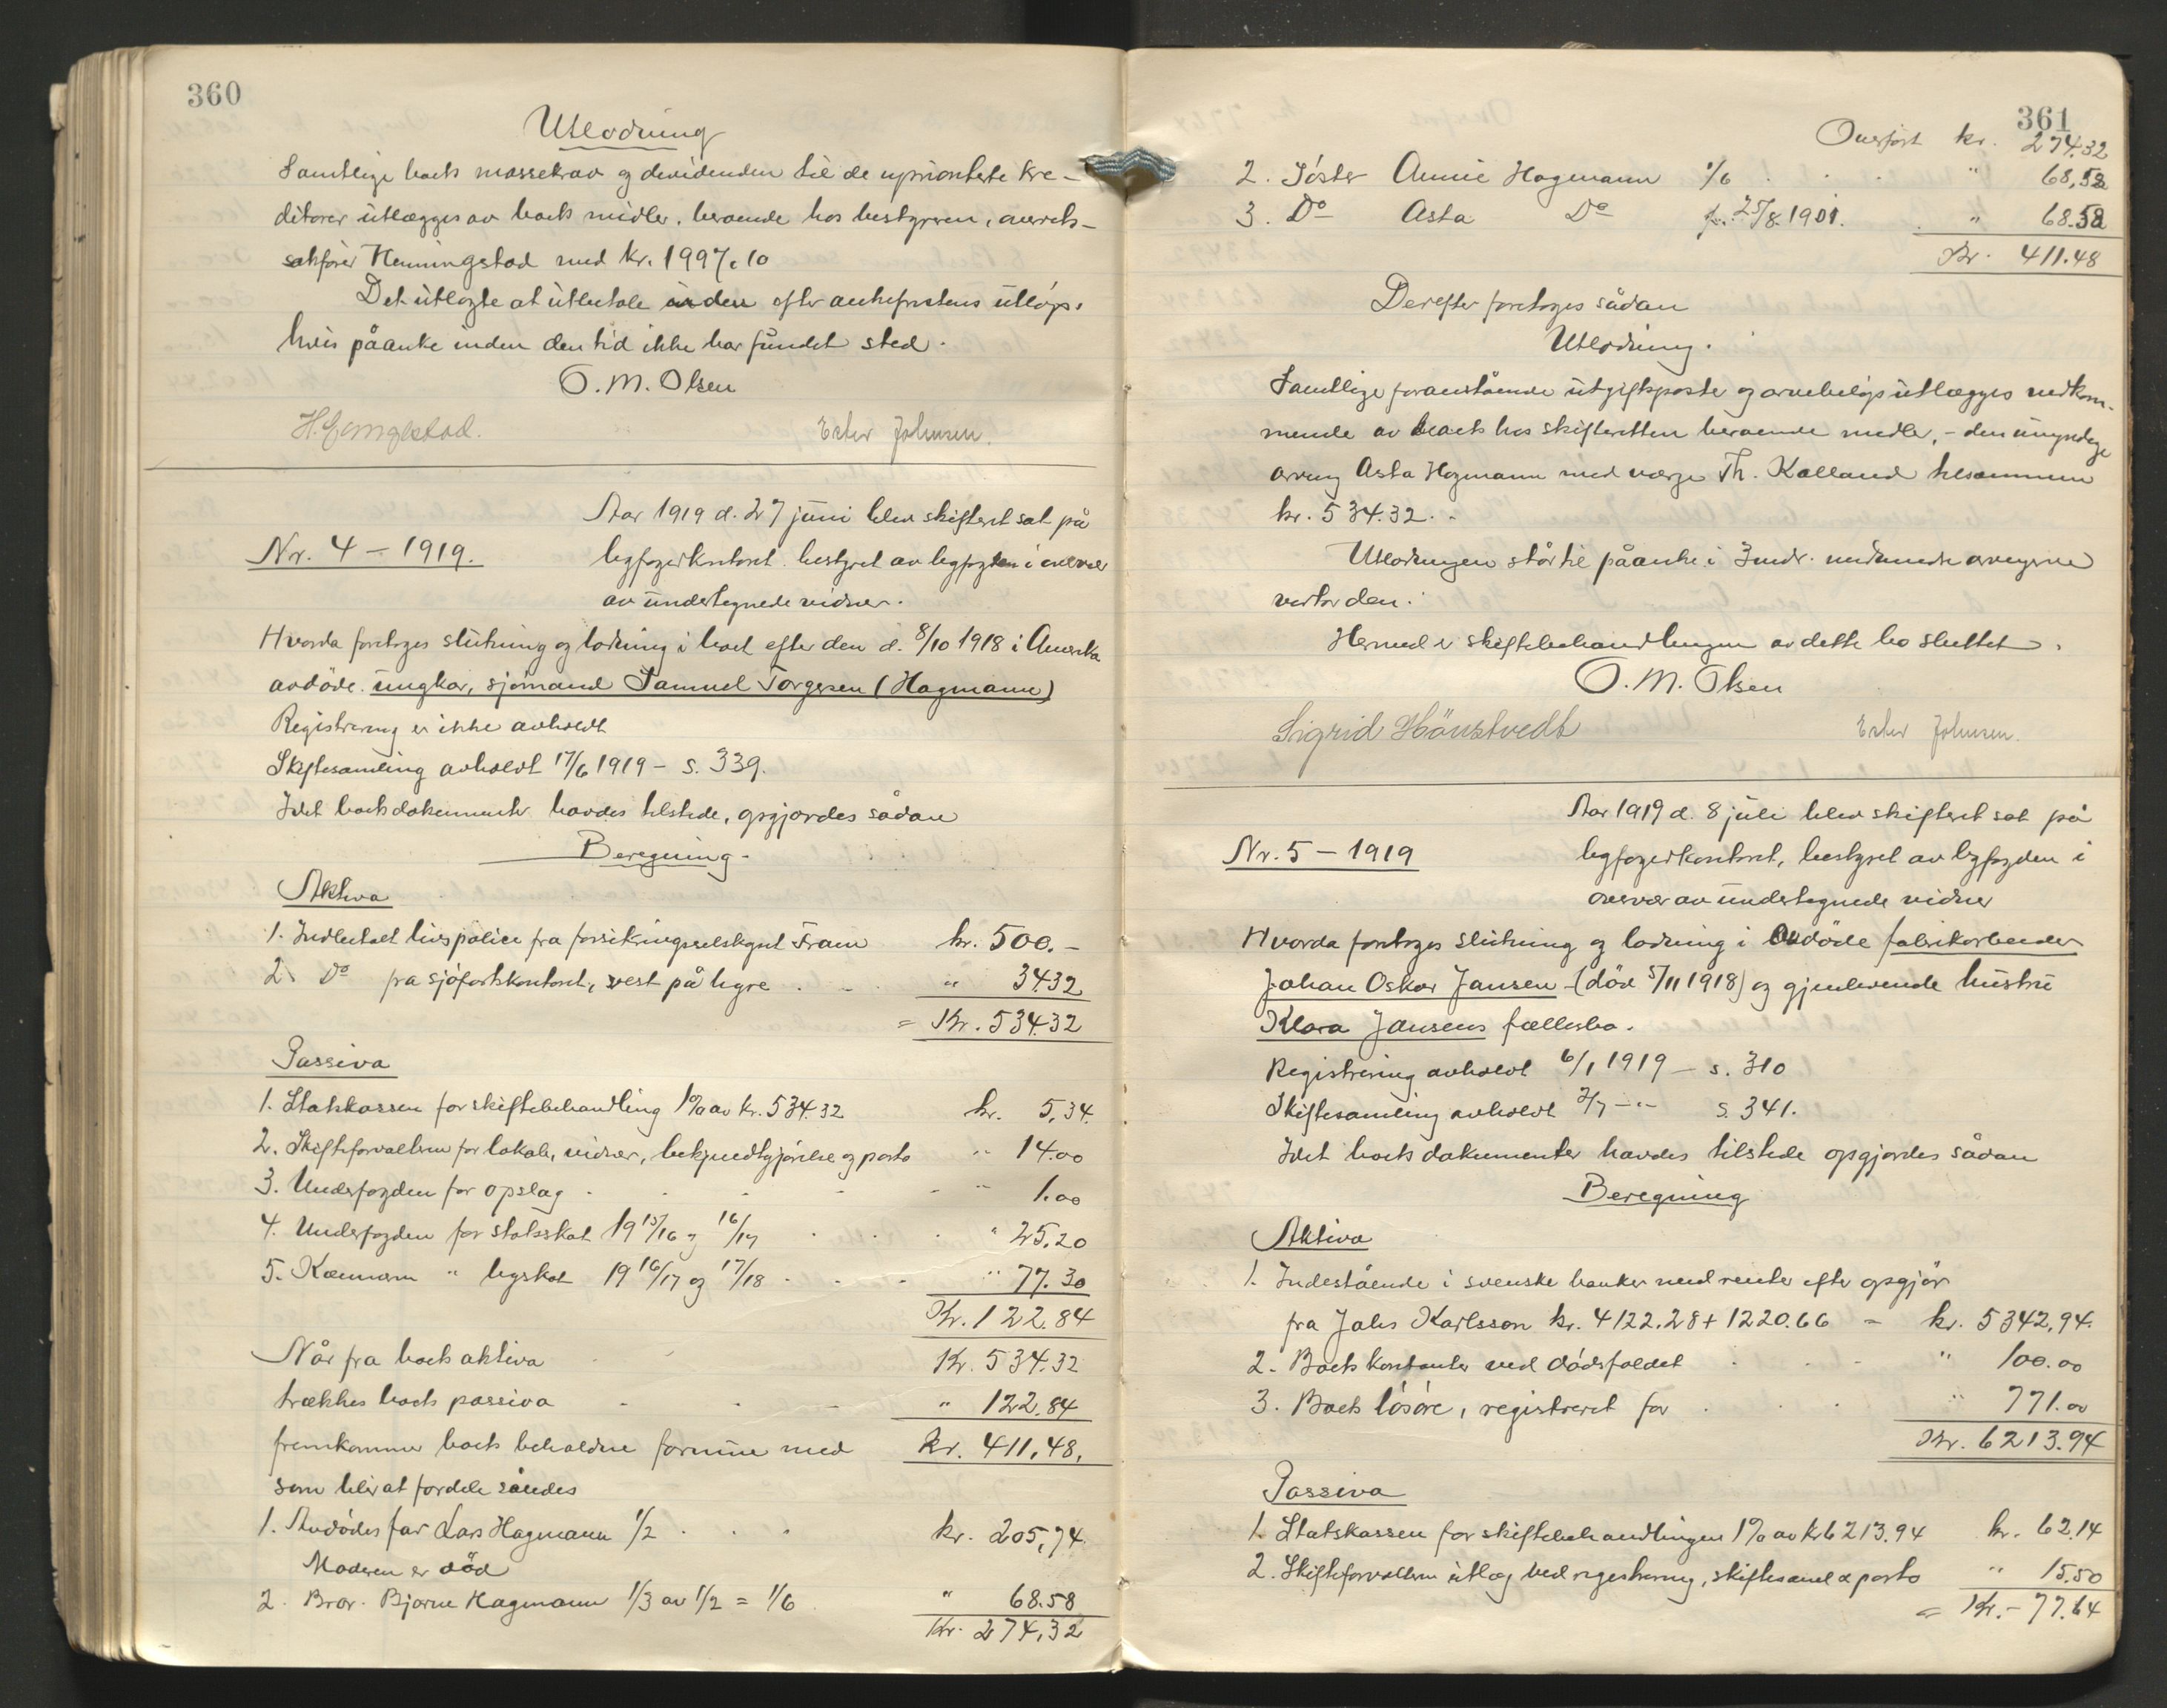 360
Utlodning
Samtlige boets massekrav og dividenden til de uprioriterte kre-
ditorer utlægges av boets midler, beroende hos bestyreren, overrets-
sakfører Henningstad med kr. 1997.10
Det utlagte at utbetale inden efter ankefristens utløp,
hvis påanke inden den tid ikke har fundet sted.
O. M. Olsen
Ester Johnsen.
Aar 1919 d. 27 juni blev skifteret sat på
Nr. 4 – 1919.
byfogedkontoret bestyret av byfogden i overvær
av undertegnede vidner.
Hvorda foretoges slutning og lodning i boet efter den d. 8/10 1918 i Amerika
avdöde ungkar, sjömand Samuel Torgersen (Hagmann)
Registrering er ikke avholdt
Skiftesamling avholdt 17/6 1919 – s. 339.
Idet boets dokumenter havdes tilstede, opgjordes sådan
Beregning.
Aktiva
1. Indbetalt livspolice fra forsikringsselskapet Fram kr. 500.-
2. Do fra sjöfartskontoret, rest på hyre " 34.32
= Kr. 534.32
Passiva
1. Statskassen for skiftebehandling 1% av kr. 534.32 kr. 5,34.
2. Skifteforvalteren for lokale, vidner, bekjendtgjörelse og porto " 14.00
3. Underfogden for opslag " 1.00
4. Underfogden for statsskat 19 15/16 og 16/17 " 25.20
5. Kæmneren " byskat 19 16/17 og 17/18 " 77.30
Kr. 122.84
Når fra boets aktiva Kr. 534.32
trækkes boets passiva " 122.84
fremkommer boets beholdne formue med Kr. 411,48,
som blir at fordele således
1. Avdödes far Lars Hagmann 1/2 kr. 205,74.
Moderen er död
2. Bror Bjarne Hagmann 1/3 av 1/2 = 1/6 " 68.58
Kr. 274,32
361
Overfört kr. 274.32
2. Söster Annie Hagmann 1/6 " 68,58
3. Do Asta Do f. 25/8 1901. " 68.58
Kr. 411.48
Derefter foretoges sådan
Utlodning.
Samtlige foranstående utgiftsposter og arvebeløp utlægges vedkom-
mende av boets hos skifteretten beroende midler, – den umyndige
arving Asta Hagmann med værge Th. Kalland tilsammen
kr. 534.32.
Utlodningen står til påanke i
vertor den.
Hermed er skiftebehandlingen av dette bo sluttet.
O. M. Olsen
Sigrid Hönstvedt Ester Johnsen.
Aar 1919 d. 8 juli blev skifteret sat på
Nr. 5 – 1919
byfogedkontoret, bestyret av byfogden i
overvær av undertegnede vidner
Hvorda foretoges slutning og lodning i avdöde fabrikarbeider
Johan Oskar Jansen (död 5/11 1918) og gjenlevende hustru
Klara Jansens fællesbo.
Registrering avholdt 6/1 1919 – s. 310
Skiftesamling avholdt 3/7 – " – s. 341.
Idet boets dokumenter havdes tilstede opgjordes sådan
Beregning
Aktiva
1. Indestående i svenske banker med renter efter opgjör
fra Johs Karlsson kr. 4122.28 + 1220.66 = kr. 5342,94.
2. Boets kontanter ved dödsfaldet " 100.00
3. Boets lösöre, registreret for " 771.00
Kr. 6213.94
Passiva
1. Statskassen for skiftebehandlingen 1% av kr 6213.94 kr. 62.14
2. Skifteforvalteren utlæg ved registrering, skiftesaml & porto " 15.50
= Kr. – 77.64